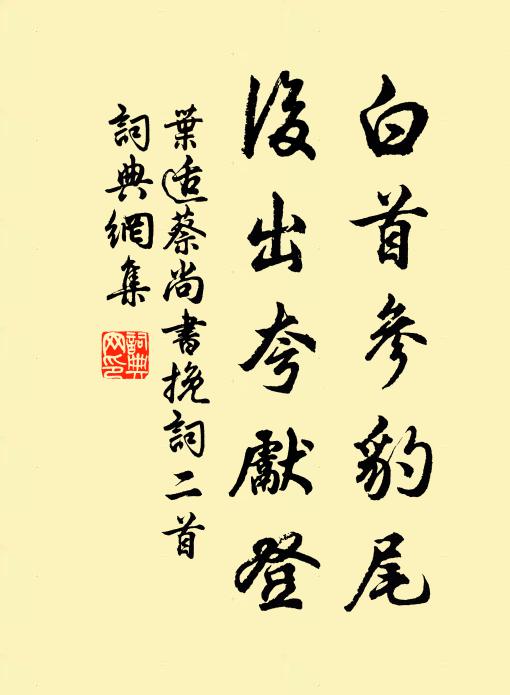 白首參豹尾
後出夸獻登
葉适蔡尚書挽詞二首
詞典網集
詞典網印